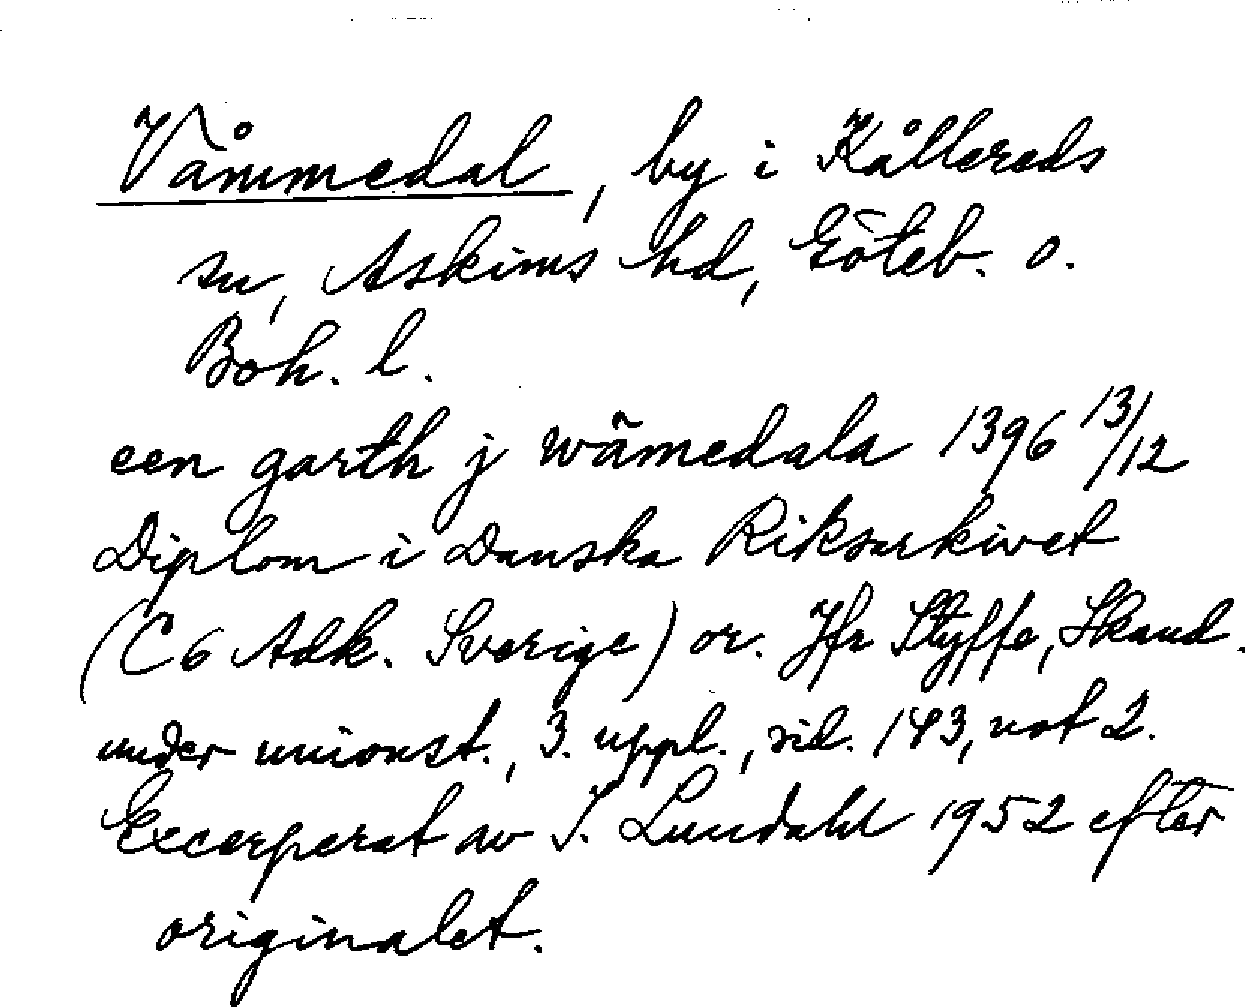 Våmmedal, by i Kållereds
sn, Askims hd, Göteb. o.
Boh. l.
een garth j wãmedala 1396 13/12
Diplom i Danska Riksarkivet
(C6 Adk. Sverige) or. Jfr Styffe, Skand.
under unionst., 3. uppl., sid. 143, not 2.
Excerperat av I. Lundahl 1952 efter
originalet.